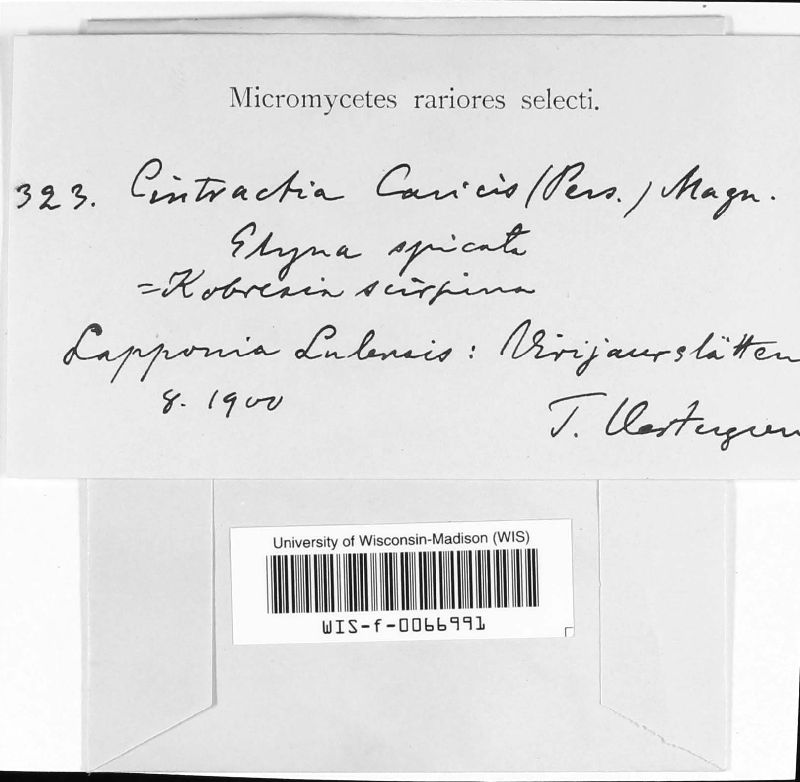 Micromycetes rariores selecti.
323. Cintractia Caricis (Pers.) Magn.
Elyna spicata
= Kobresia scirpina
Lapponia Lulensis: Virijaurslätten
8. 1900
T. Vestergren
University of Wisconsin-Madison (WIS)
WIS-f-0066991